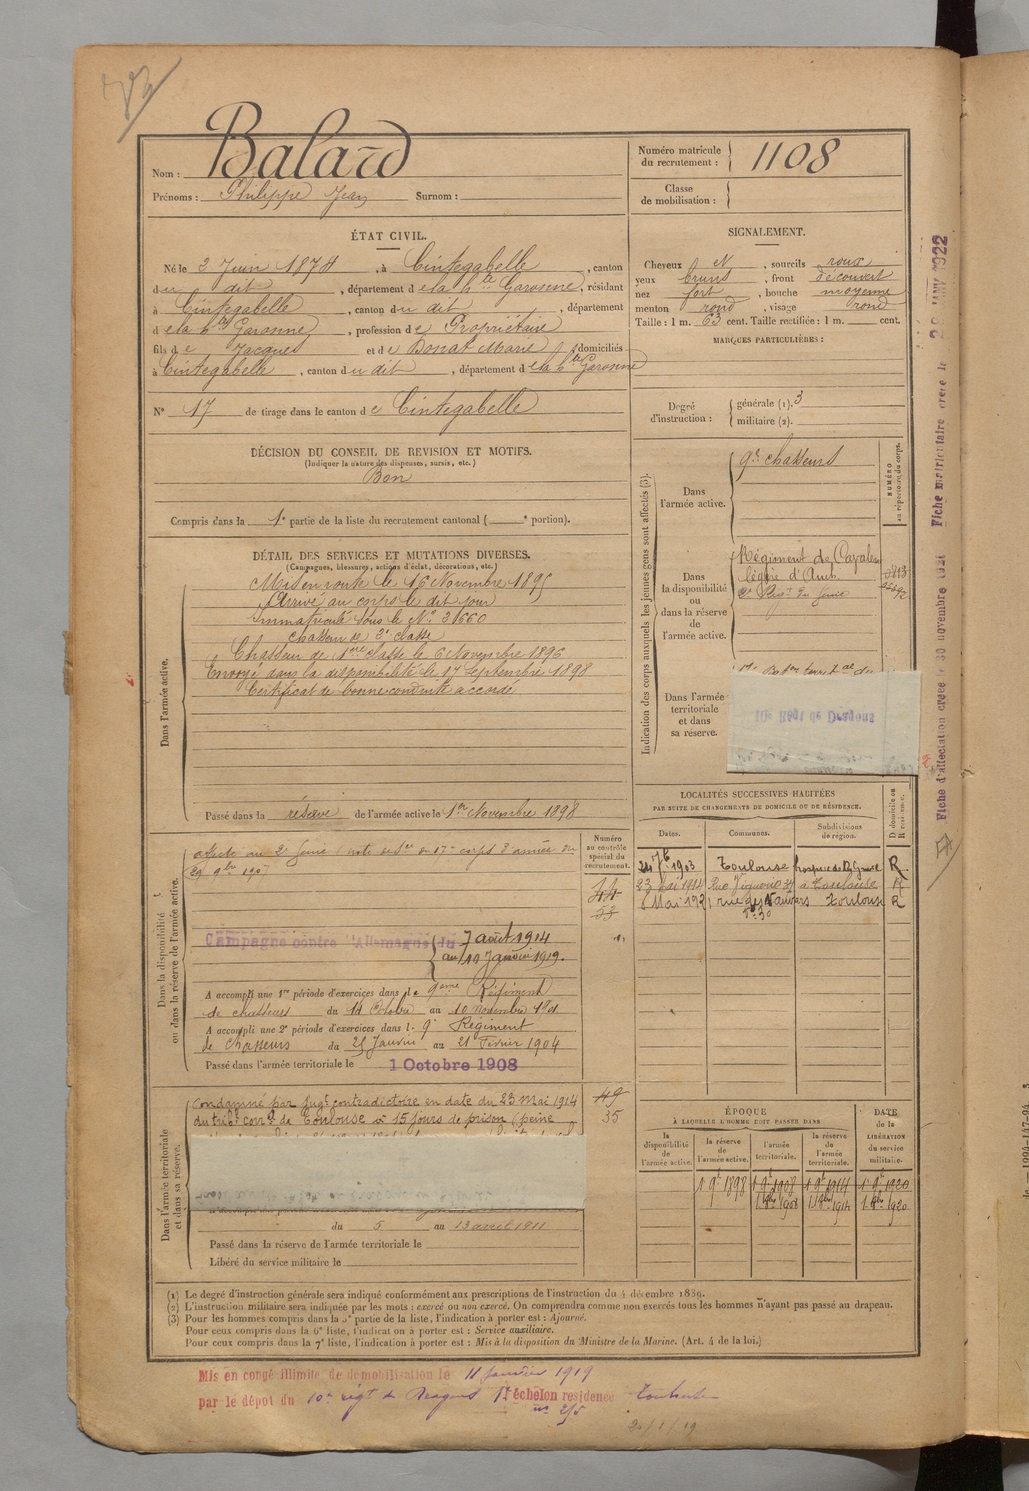 Nom : Balard
Prénoms : Philippe Jean Surnom :
Numéro matricule du recrutement : 1108
Classe de mobilisation :
ÉTAT CIVIL.
Né le 2 Juin 1874, à Cintegabelle, canton
du dit, département de la Hte Garonne, résidant
à Cintegabelle, canton du dit, département
de la Hte Garonne, profession de Propriétaire
fils de Jacques et de Bonat Marie domiciliés
à Cintegabelle, canton du dit, département de la Hte Garonne
N° 17 de tirage dans le canton de Cintegabelle
SIGNALEMENT.
Cheveux N, sourcils roux
yeux bruns, front découvert
nez fort, bouche moyenne
menton rond, visage rond
Taille : 1 m. 63 cent. Taille rectifiée : 1 m. cent.
MARQUES PARTICULIÈRES :
Degré d'instruction : générale (1). 3
militaire (2).
DÉCISION DU CONSEIL DE REVISION ET MOTIFS.
(Indiquer la nature des dispenses, sursis, etc.)
Bon
Compris dans la 1e partie de la liste du recrutement cantonal ( e portion).
DÉTAIL DES SERVICES ET MUTATIONS DIVERSES.
(Campagnes, blessures, actions d'éclat, décorations, etc.)
Dans l'armée active.
Mis en route le 16 Novembre 1895
Arrivé au corps le dit jour
Immatriculé sous le N° 3660
chasseur de 2e classe
Chasseur de 1ère classe le 6 Novembre 1896
Envoyé dans la disponibilité le 17 Septembre 1898
Certificat de bonne conduite accordé
Passé dans la réserve de l'armée active le 1er Novembre 1898
Indication des corps auxquels les jeunes gens sont affectés (3).
NUMÉRO au répertoire du corps.
Dans l'armée active.
9e chasseurs
Dans la disponibilité ou dans la réserve de l'armée active.
Régiment de Cavalerie
légère d'Auch
2e Régt du Génie
Dans l'armée territoriale et dans sa réserve.
10e Régt de Dragons
LOCALITÉS SUCCESSIVES HABITÉES
PAR SUITE DE CHANGEMENTS DE DOMICILE OU DE RÉSIDENCE.
Dates. Communes. Subdivisions de région. D domicile ou R résidence.
24 7b 1903 Toulouse R
23 mai 1914 à Toulouse R
6 Mai 192 rue des Toulouse R
Dans la disponibilité ou dans la réserve de l'armée active.
Numéro au contrôle spécial du recrutement.
affecté au 2e Génie
29 9bre 1907
Campagne contre l'Allemagne du 7 août 1914
au 11 Janvier 1919.
A accompli une 1re période d'exercices dans le 9ème Régiment
de chasseurs du 14 Octobre au 10 Novembre 1901
A accompli une 2e période d'exercices dans l. 9e Régiment
de Chasseurs du 25 Janvier au 21 Février 1904
Passé dans l'armée territoriale le 1 Octobre 1908
Dans l'armée territoriale et dans sa réserve.
Condamné par Jugt contradictoire en date du 23 Mai 1914
du tribal correl de Toulouse à 15 jours de prison (peine
49
35
du 5 au 13 avril 1911
Passé dans la réserve de l'armée territoriale le
Libéré du service militaire le
ÉPOQUE
À LAQUELLE L'HOMME DOIT PASSER DANS
la disponibilité de l'armée active. la réserve de l'armée active. l'armée territoriale. la réserve de l'armée territoriale.
DATE de la LIBÉRATION du service militaire.
1 9b 1898 1 9b 1908 1 9b 1914 1 9b 1920
1 8bre 1908 1 8bre 1914 1 8bre 1920
(1) Le degré d'instruction générale sera indiqué conformément aux prescriptions de l'instruction du 4 décembre 1889.
(2) L'instruction militaire sera indiquée par les mots : exercé ou non exercé. On comprendra comme non exercés tous les hommes n'ayant pas passé au drapeau.
(3) Pour les hommes compris dans la 5e partie de la liste, l'indication à porter est : Ajourné.
Pour ceux compris dans la 6e liste, l'indication à porter est : Service auxiliaire.
Pour ceux compris dans la 7e liste, l'indication à porter est : Mis à la disposition du Ministre de la Marine. (Art. 4 de la loi.)
Mis en congé illimité de démobilisation le 11 Janvier 1919
par le dépôt du 10e régt de Dragons 1er échelon résidence Toulouse
n° 215
20/1/19
Fiche d'affectation créée 30 novembre 1920 Fiche matriculaire créée le 20 JANV 1922